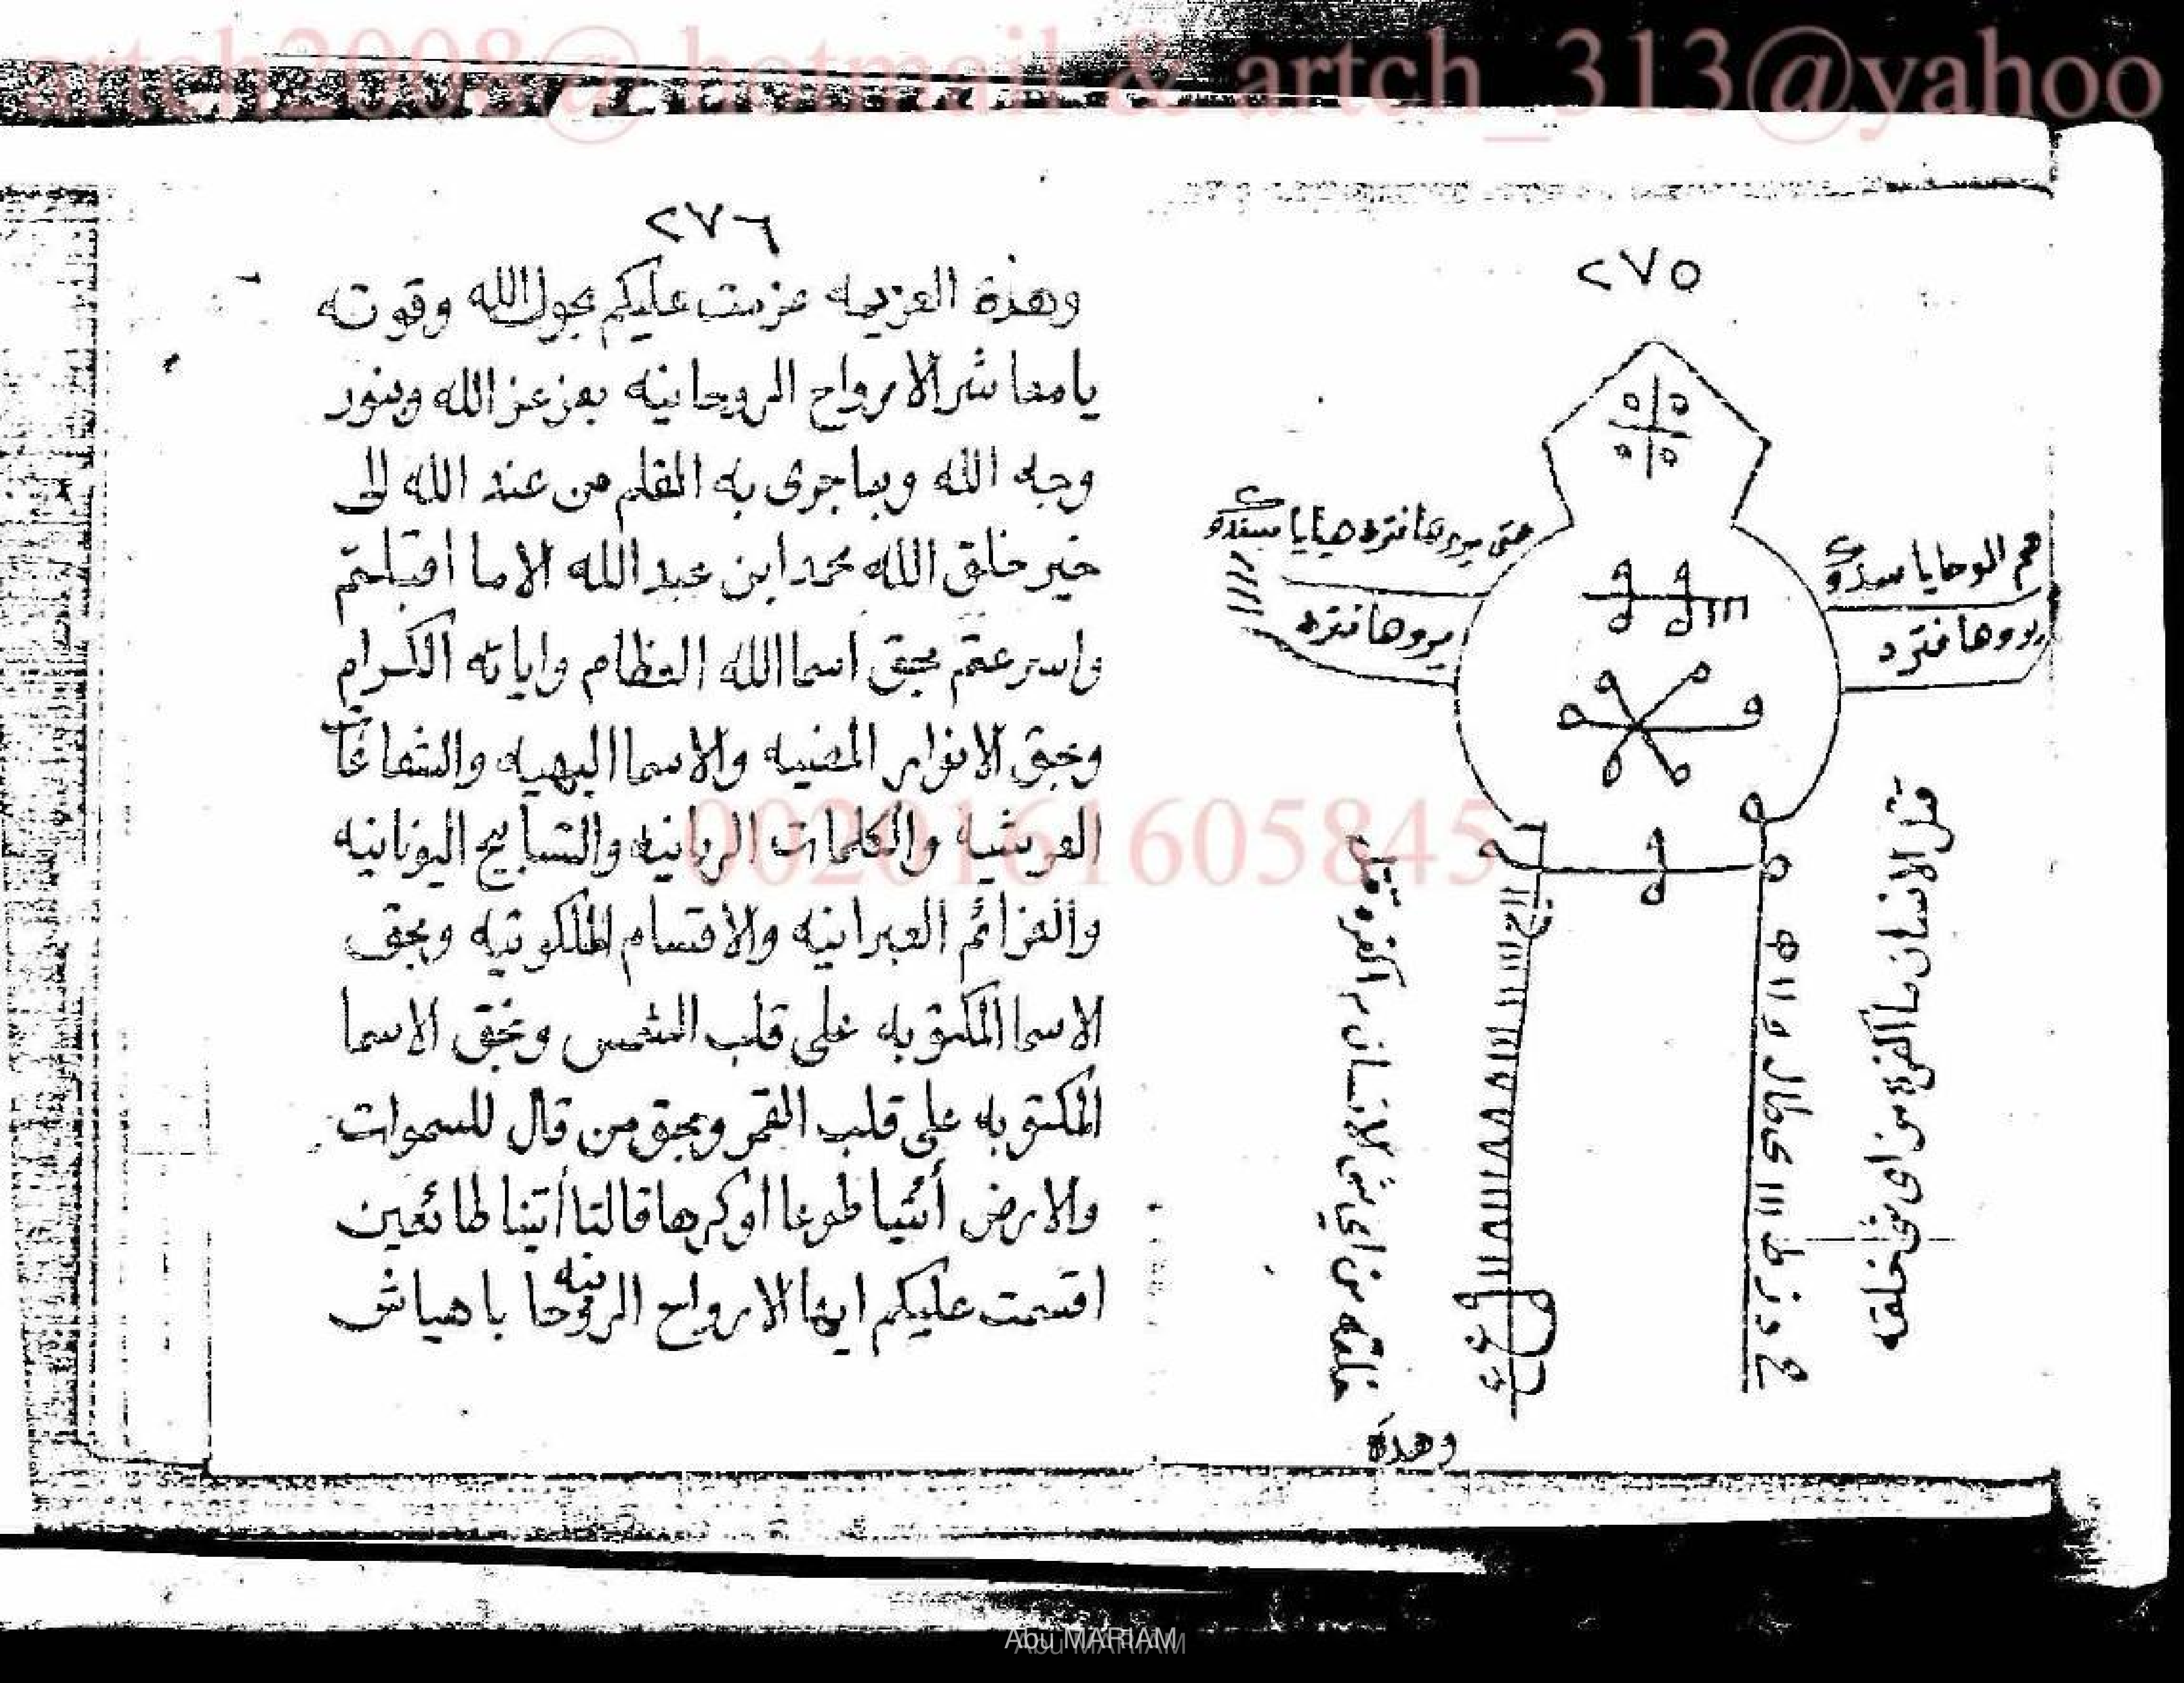 artch2008@hotmail & artch_313@yahoo
٢٧٥
هم الوحايا
روها نتره
يروها نتره
قتل الانسان ما اكفره من اي شى خلقه
قتل الانسان ما اكفره من اي شى خلقه
وهذه
٢٧٦
وهذة العزيمه عزمت عليكم بحول الله وقوته
يا معاشر الارواح الروحانيه بعز عز الله وبنور
وجه الله وبما جرى به القلم من عند الله الى
خير خلق الله محمد ابن عبد الله الا ما اقبلتم
واسرعتم بحق اسما الله العظام واياته الكرام
وبحق الانوار المضيه والاسما البهيه والشعاعات
العرشيه والكلمات الربانيه والتسابيح اليونانيه
والعزائم العبرانيه والاقسام الملكوتيه وبحق
الاسما المكتوبه على قلب الشمس وبحق الاسما
المكتوبه على قلب القمر وبحق من قال للسموات
والارض أئتيا طوعا او كرها قالتا أتينا طائعين
اقسمت عليكم ايها الارواح الروحانيه باهياش
0020161605845
Abu MARIAM